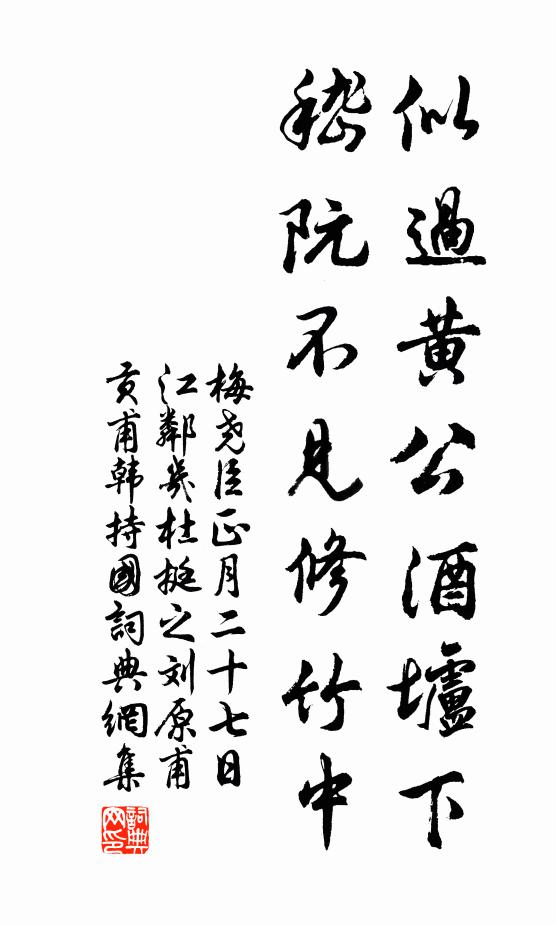 似過黄公酒壚下
嵇阮不見修竹中
梅尧臣正月二十七日
江鄰幾杜挺之刘原甫
贡甫韩持國詞典網集
詞典网印